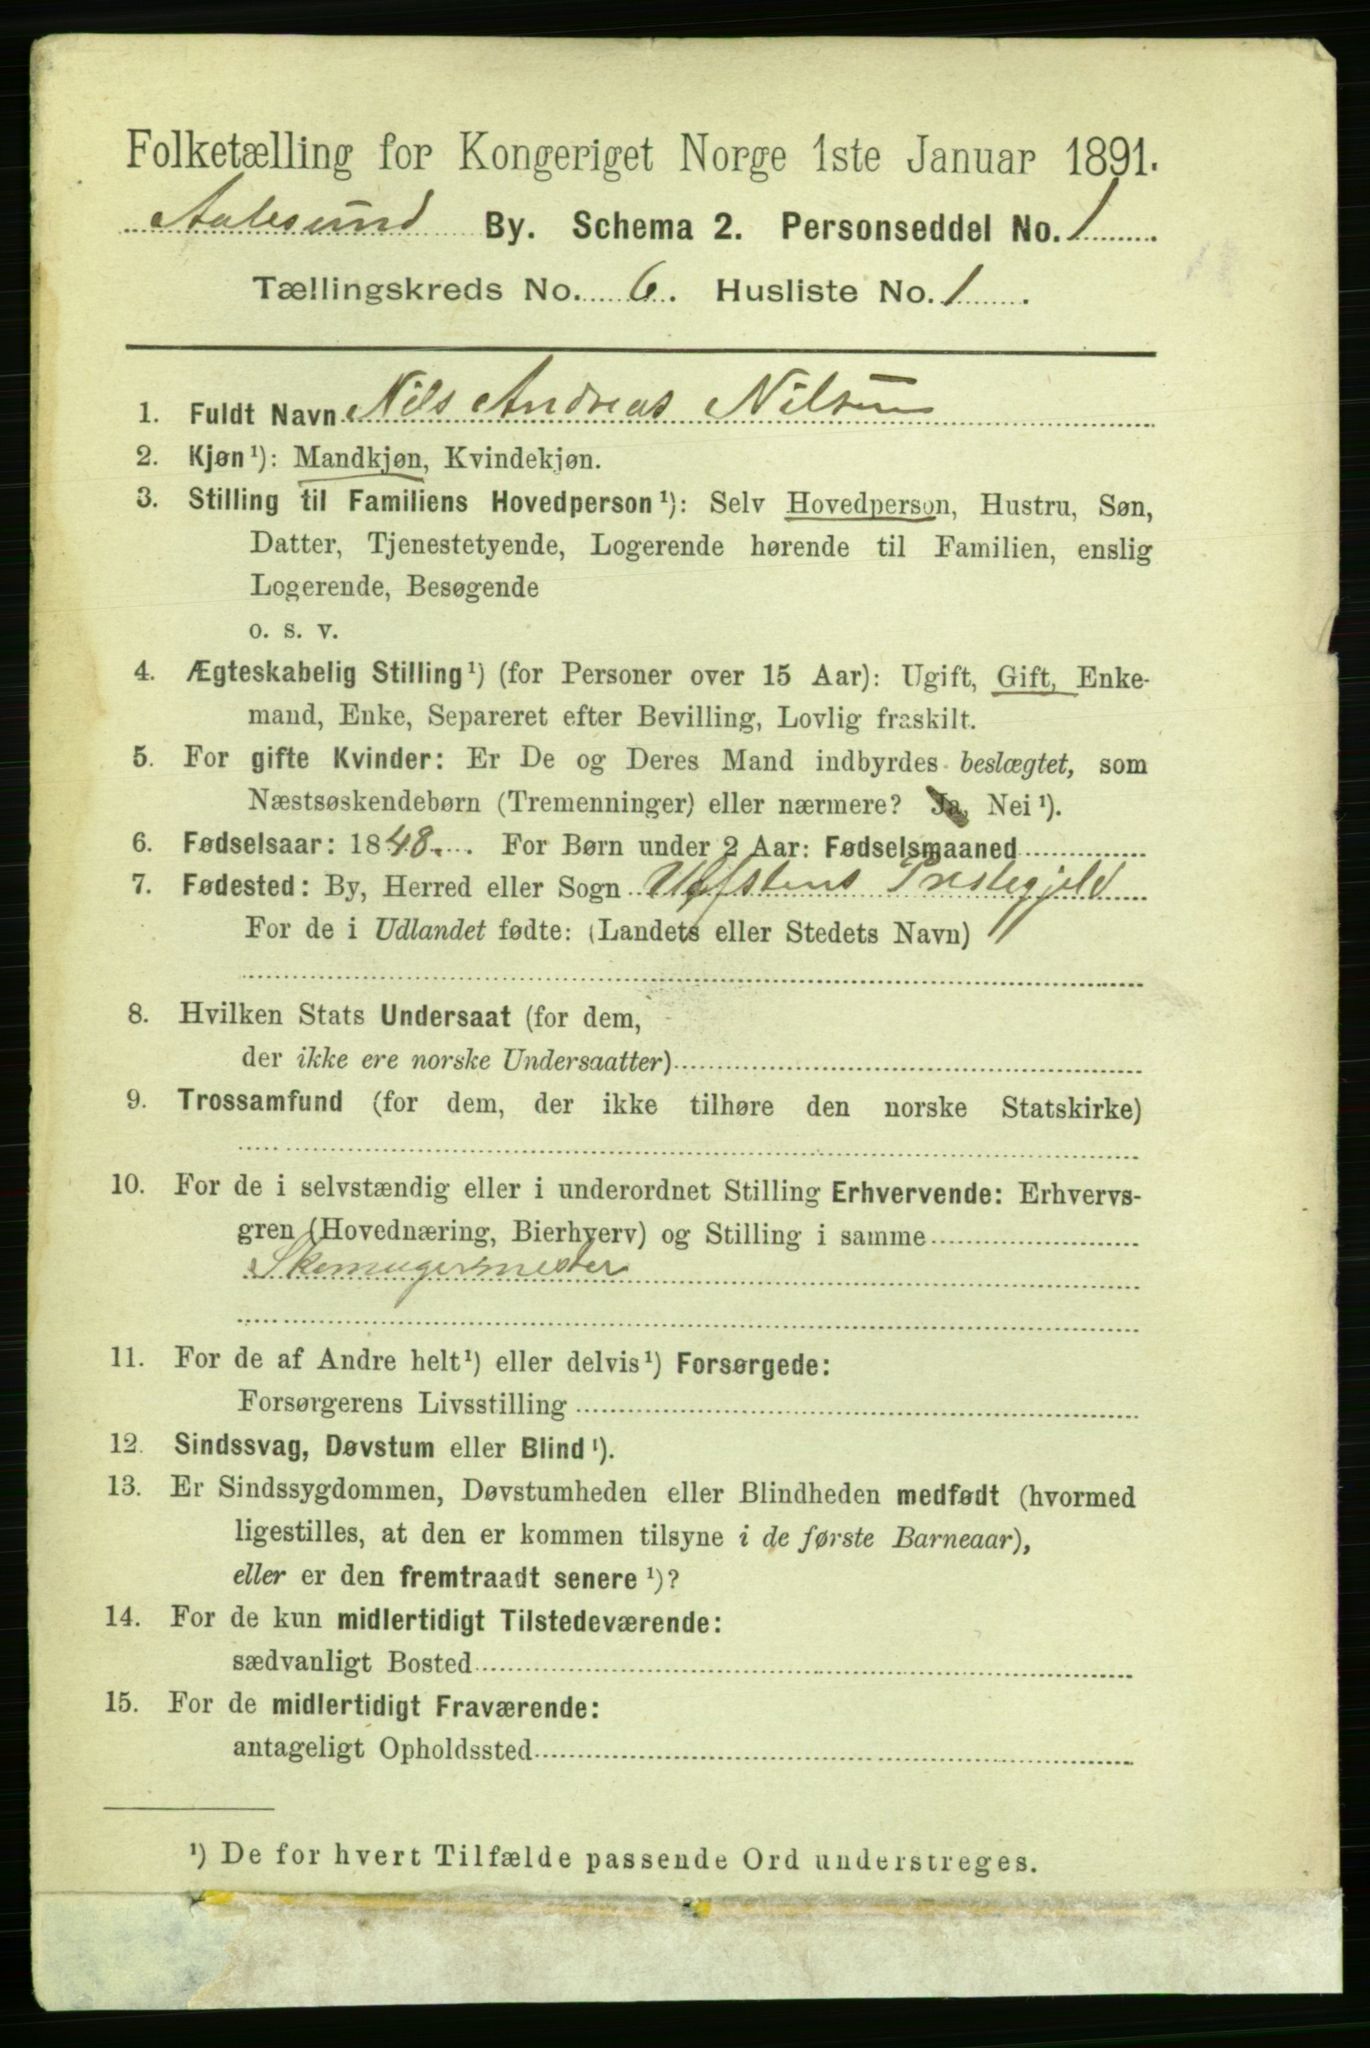 Folketælling for Kongeriget Norge 1ste Januar 1891.
Aalesund By. Schema 2. Personseddel No. 1
Tællingskreds No. 6. Husliste No. 1.
1. Fuldt Navn Nils Andreas Nilsen
2. Kjøn¹): Mandkjøn, Kvindekjøn.
3. Stilling til Familiens Hovedperson¹): Selv Hovedperson, Hustru, Søn,
Datter, Tjenestetyende, Logerende hørende til Familien, enslig
Logerende, Besøgende
o. s. v.
4. Ægteskabelig Stilling¹) (for Personer over 15 Aar): Ugift, Gift, Enke-
mand, Enke, Separeret efter Bevilling, Lovlig fraskilt.
5. For gifte Kvinder: Er De og Deres Mand indbyrdes beslægtet, som
Næstsøskendebørn (Tremenninger) eller nærmere? Ja, Nei¹).
6. Fødselsaar: 1848. For Børn under 2 Aar: Fødselsmaaned
7. Fødested: By, Herred eller Sogn Ulfstens Prestegjeld
For de i Udlandet fødte: (Landets eller Stedets Navn)
8. Hvilken Stats Undersaat (for dem,
der ikke ere norske Undersaatter)
9. Trossamfund (for dem, der ikke tilhøre den norske Statskirke)
10. For de i selvstændig eller i underordnet Stilling Erhvervende: Erhvervs-
gren (Hovednæring, Bierhverv) og Stilling i samme
Skomagermester
11. For de af Andre helt¹) eller delvis¹) Forsørgede:
Forsørgerens Livsstilling
12. Sindssvag, Døvstum eller Blind¹).
13. Er Sindssygdommen, Døvstumheden eller Blindheden medfødt (hvormed
ligestilles, at den er kommen tilsyne i de første Barneaar),
eller er den fremtraadt senere¹)?
14. For de kun midlertidigt Tilstedeværende:
sædvanligt Bosted
15. For de midlertidigt Fraværende:
antageligt Opholdssted
¹) De for hvert Tilfælde passende Ord understreges.